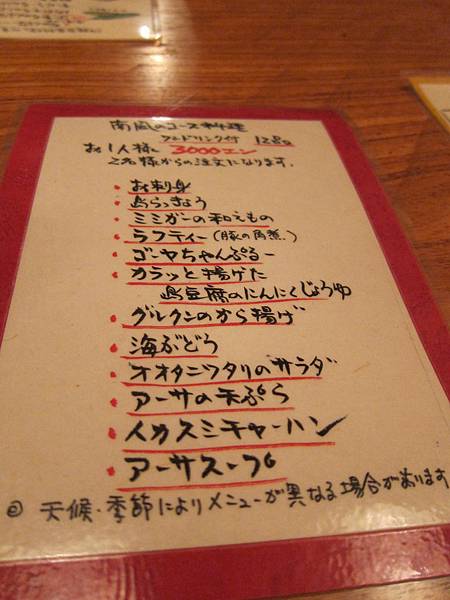 南風のコース料理
ワンドリンク付
お1人様 3000エン
2名様からの注文になります。
・お刺身
・島らっきょう
・ミミガーの和えもの
・ラフティー(豚の角煮。)
・ゴーヤちゃんぷるー
・カラッと揚げた
島豆腐のにんにくじょうゆ
・グルクンのから揚げ
・海ぶどう
・オオタニワタリのサラダ
・アーサの天ぷら
・イカスミチャーハン
・アーサスープ
天候・季節によりメニューが異なる場合があります